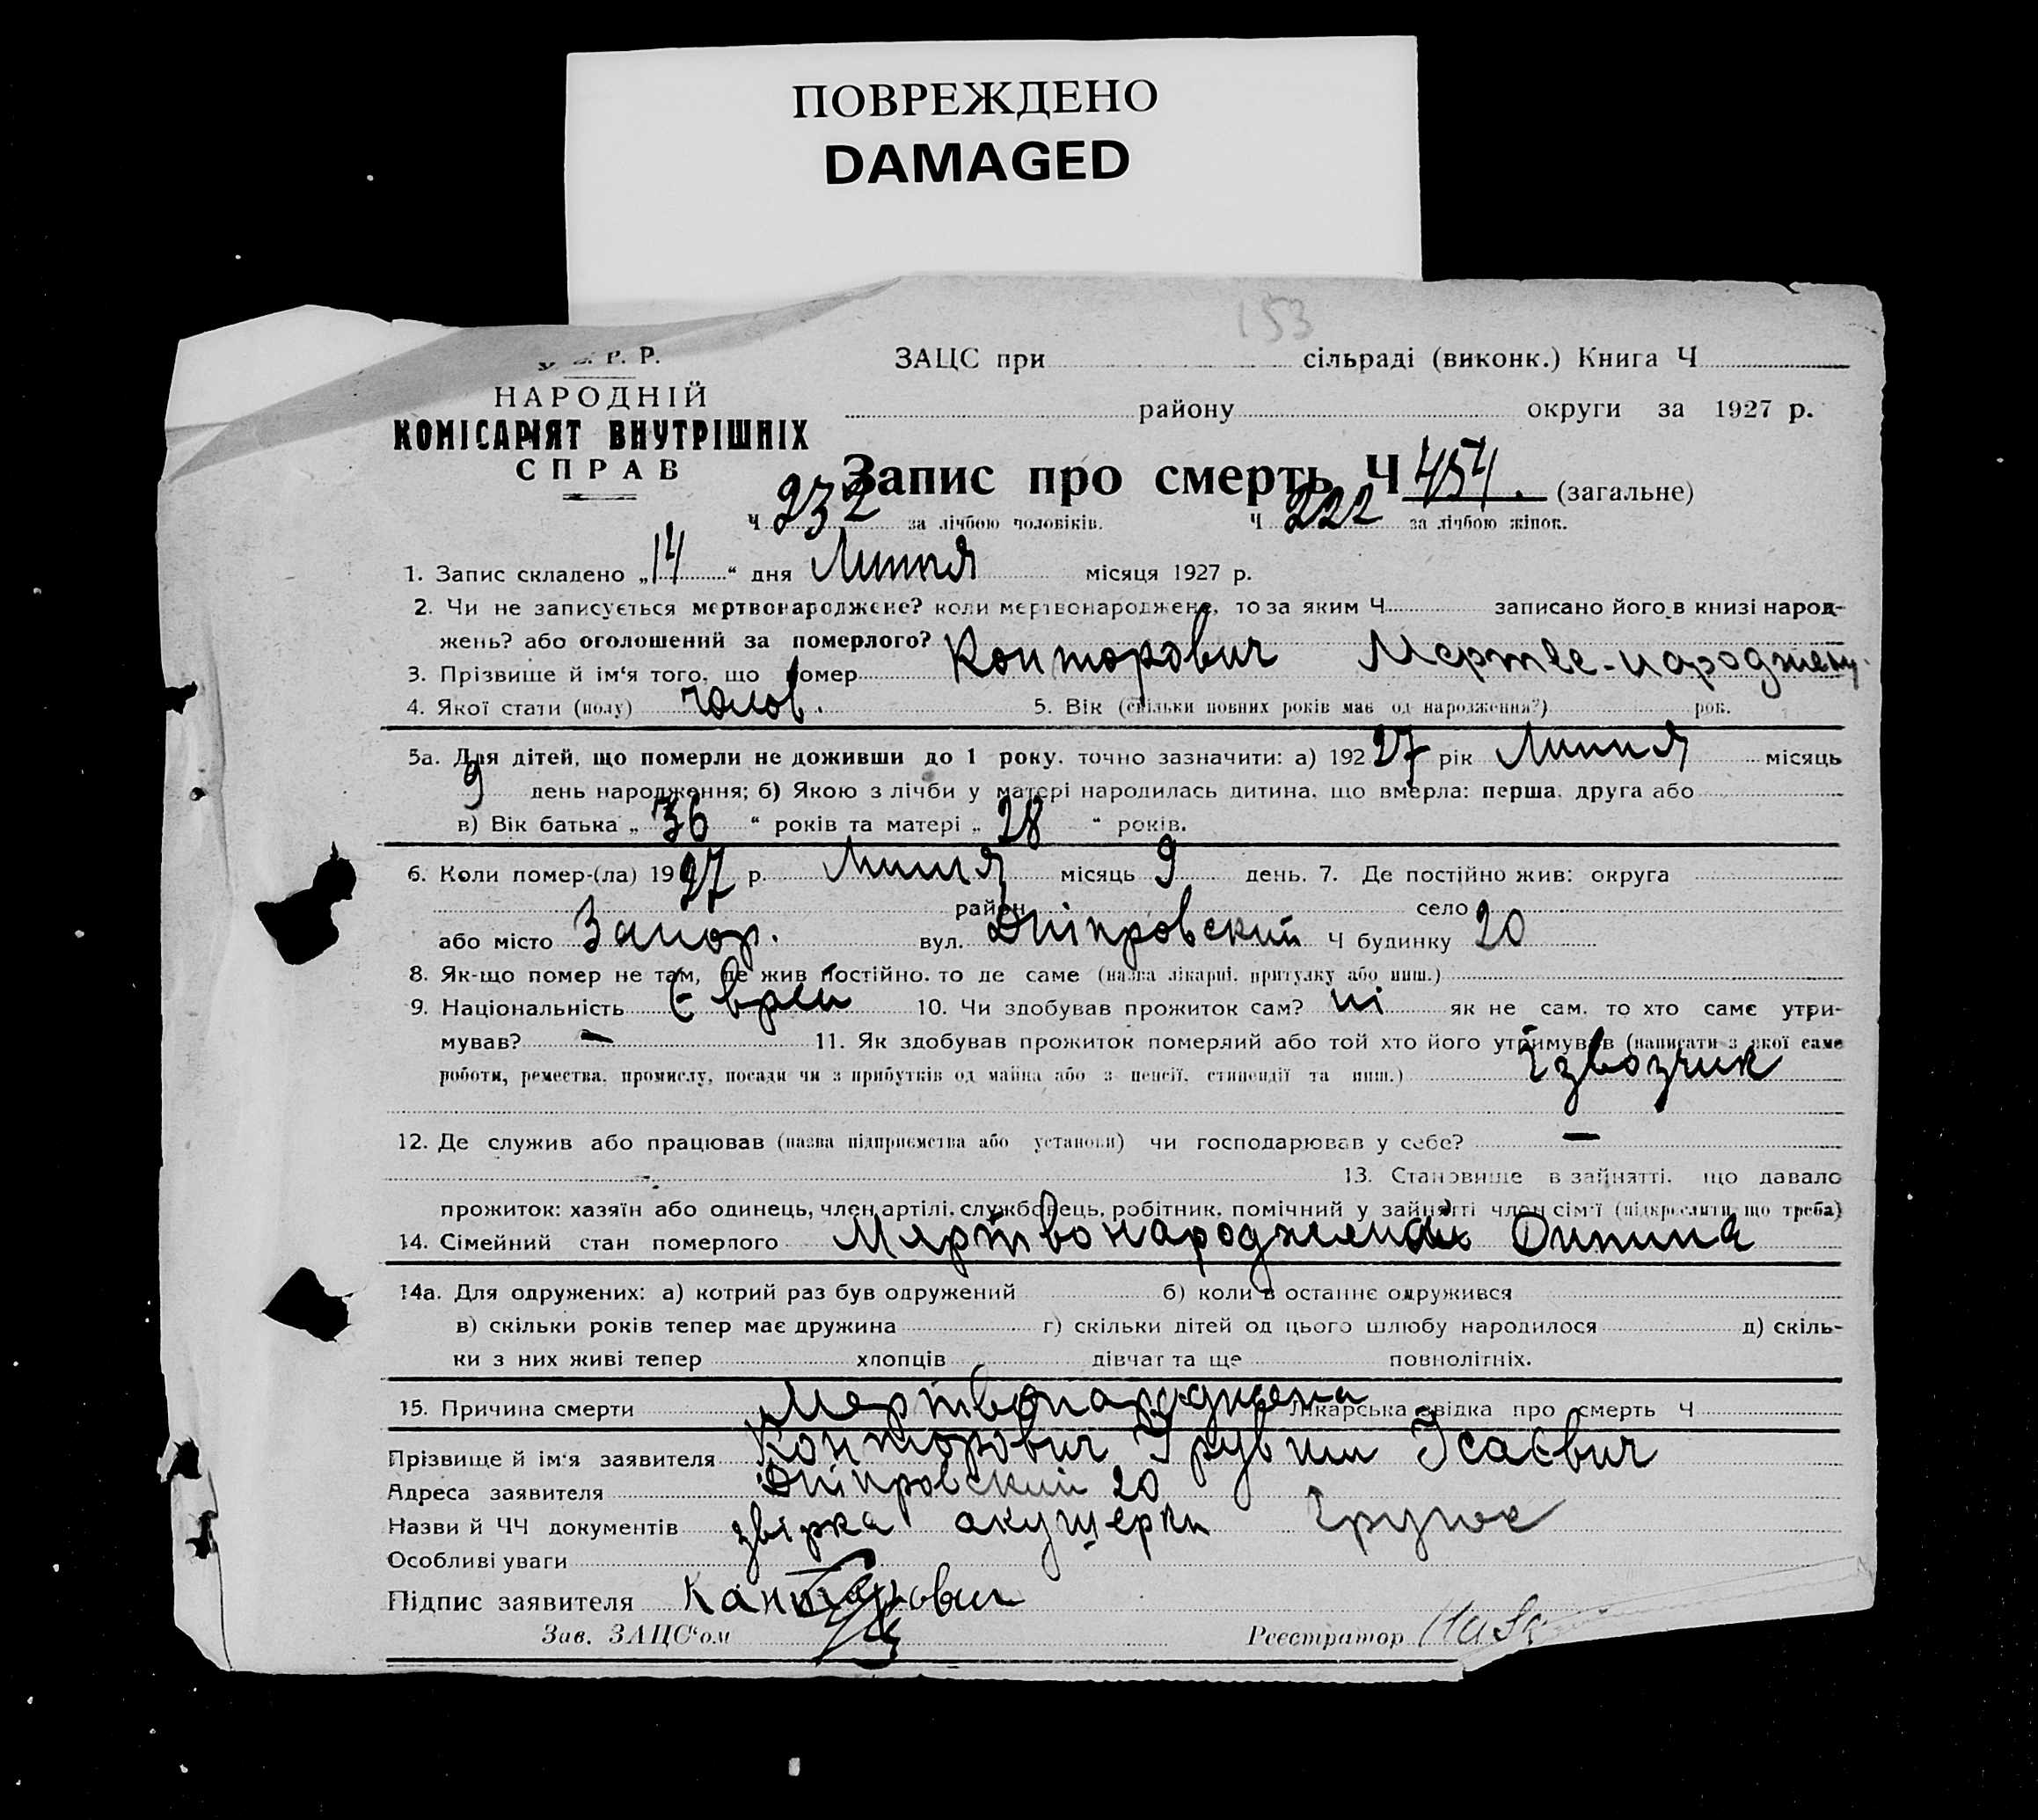 ПОВРЕЖДЕНО
DAMAGED
153
Р. Р.
НАРОДНІЙ
КОМІСАРІЯТ ВНУТРІШНІХ
СПРАВ
ЗАЦС при сільраді (виконк.) Книга Ч
району округи за 1927 р.
Запис про смерть Ч 454. (загальне)
Ч 232 за лічбою чоловіків. Ч 222 за лічбою жінок.
1. Запис складено „14“ дня Липня місяця 1927 р.
2. Чи не записується мертвонароджене? коли мертвонароджене, то за яким Ч записано його в книзі народ-
жень? або оголошений за померлого?
3. Прізвище й ім‘я того, що помер Конторович Мертве-народжену
4. Якої стати (полу) чолов. 5. Вік (скільки повних років має од народження?) рок.
5а. Для дітей, що померли не доживши до 1 року, точно зазначити: а) 192 27 рік Липня місяць
9 день народження; б) Якою з лічби у матері народилась дитина, що вмерла: перша, друга або
в) Вік батька „36“ років та матері „28“ років.
6. Коли помер-(ла) 1927 р. Липня місяць 9 день. 7. Де постійно жив: округа
район село
або місто Запор. вул. Дніпровский Ч будинку 20
8. Як-що помер не там, де жив постійно, то де саме (назва лікарні, притулку або инш.)
9. Національність Єврей 10. Чи здобував прожиток сам? ні як не сам, то хто саме утри-
мував? — 11. Як здобував прожиток померлий або той хто його утримував (написати з якої саме
роботи, ремества, промислу, посади чи з прибутків од майна або з пенсії, стипендії та инш.) Ізвозчик
12. Де служив або працював (назва підприємства або установи) чи господарював у себе? —
13. Становище в зайнятті, що давало
прожиток: хазяїн або одинець, член артілі, службовець, робітник, помічний у зайнятті член сім‘ї (підкреслити що треба)
14. Сімейний стан померлого
14а. Для одружених: а) котрий раз був одружений б) коли в останнє одружився
в) скільки років тепер має дружина г) скільки дітей од цього шлюбу народилося д) скіль-
ки з них живі тепер хлопців дівчат та ще повнолітніх.
15. Причина смерти Мертвонароджена Лікарська звідка про смерть Ч
Прізвище й ім‘я заявителя Конторович Исаєвич
Адреса заявителя Дніпровский 20
Назви й ЧЧ документів звірка акушерки
Особливі уваги
Підпис заявителя Канторович
Зав. ЗАЦС‘ом Реєстратор